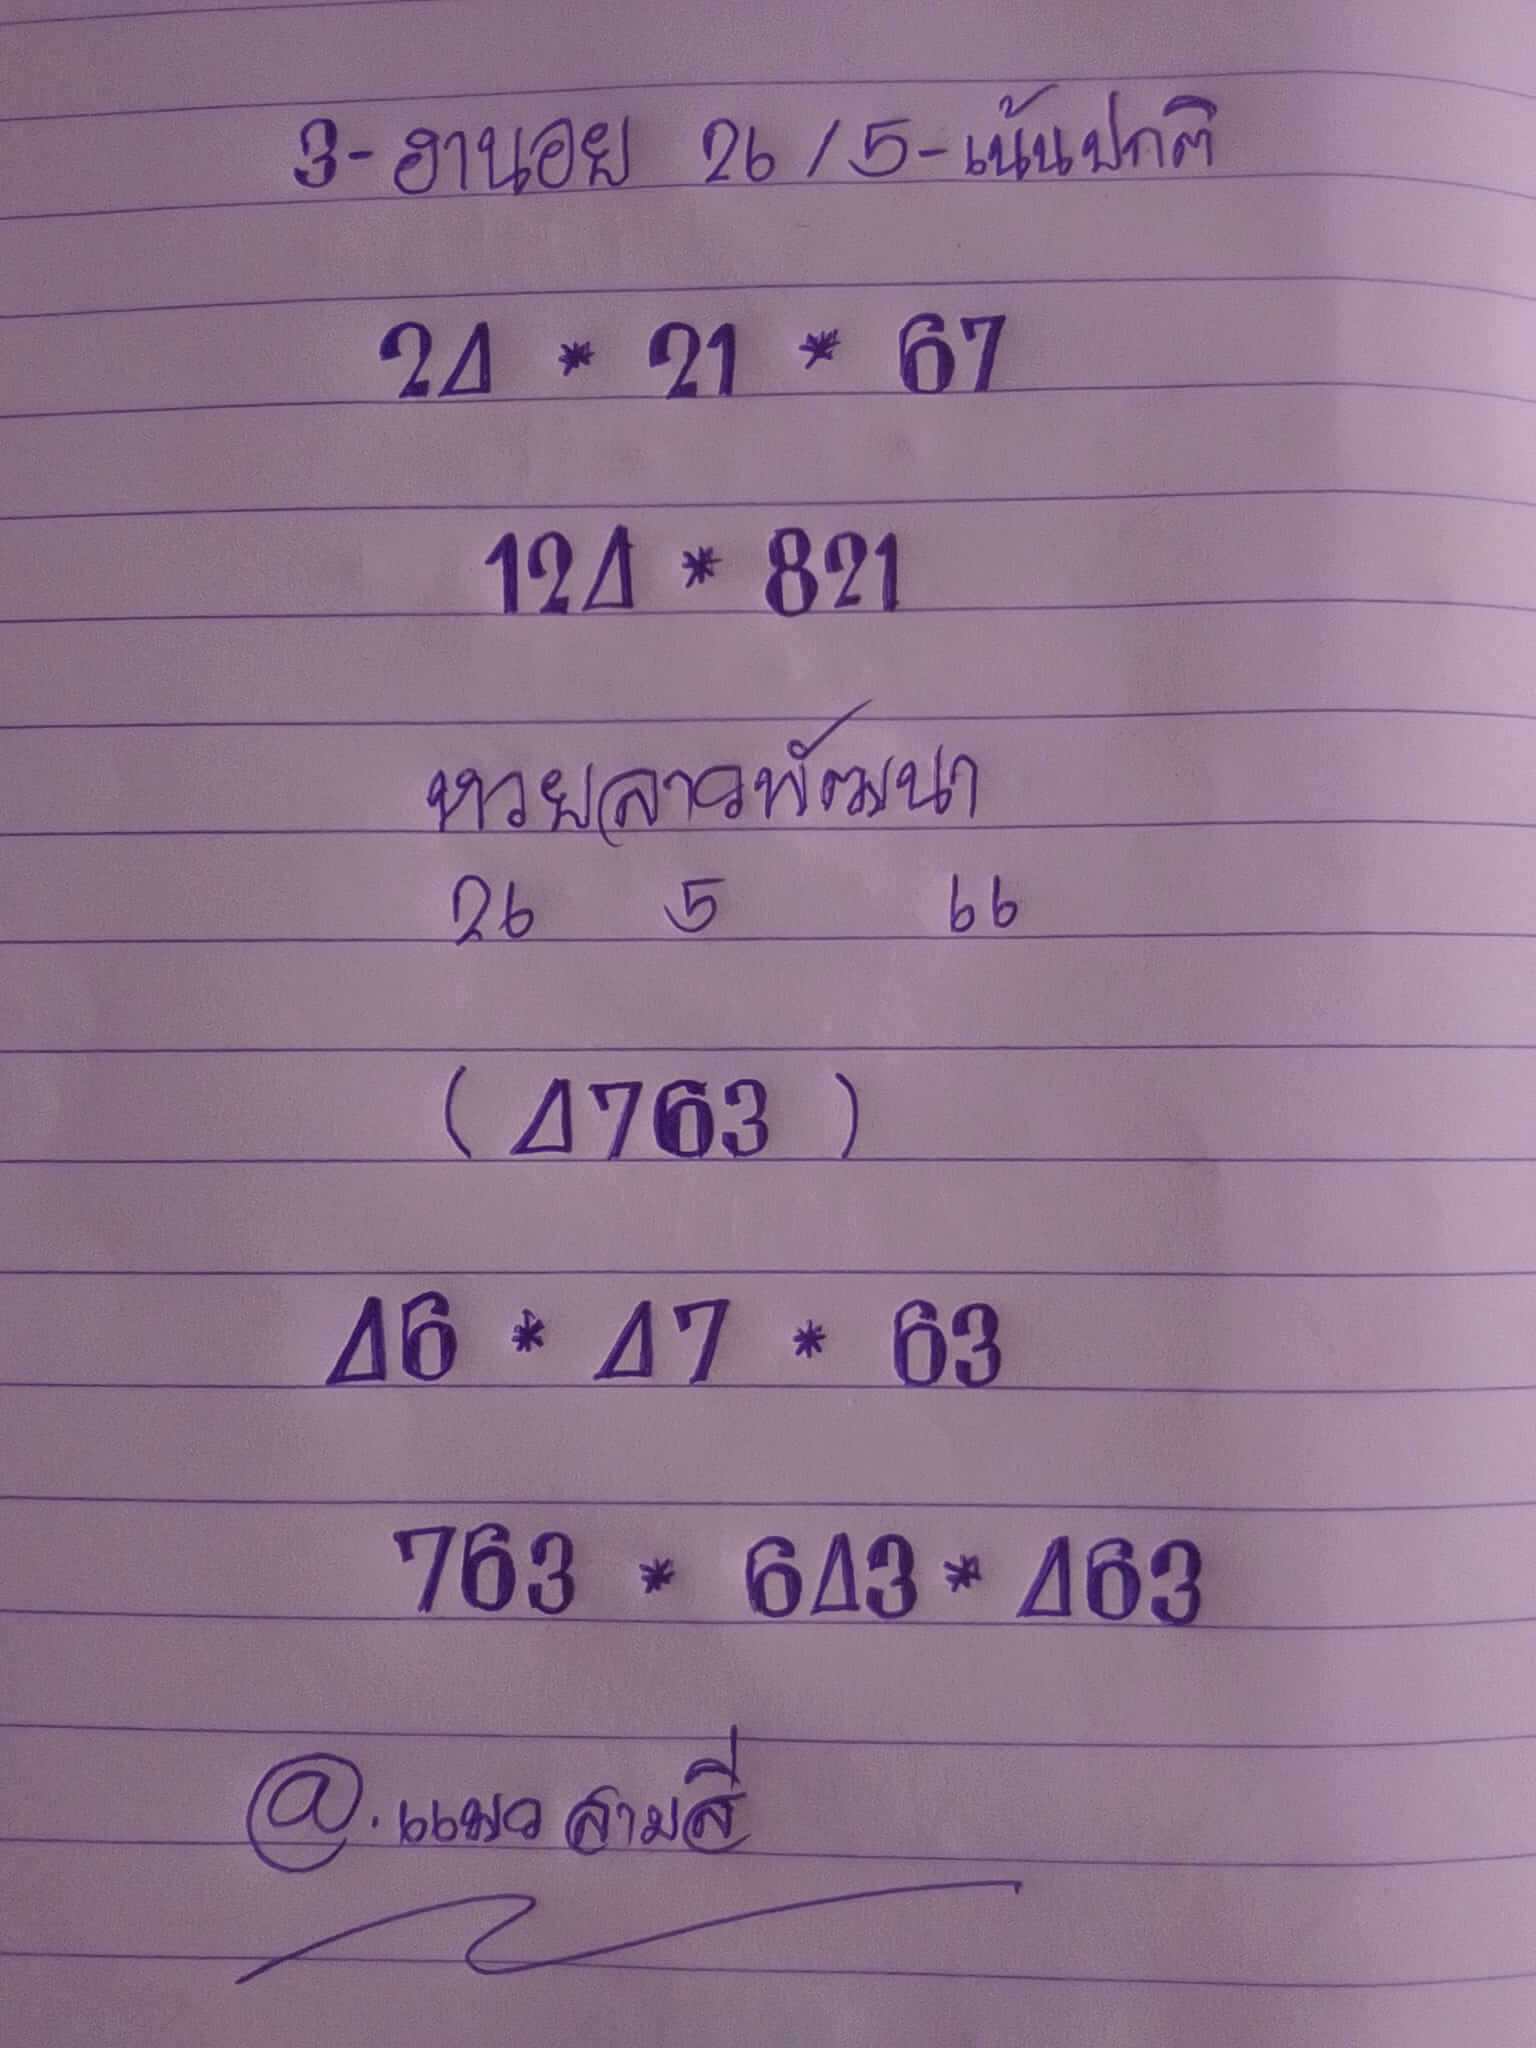 3-ฮานอย 26/5-เน้นปกติ
24 * 21 * 67
124 * 821
หวยลาวพัฒนา
26 5 66
(4763)
46 * 47 * 63
763 * 643 * 463
@.แมว สามสี